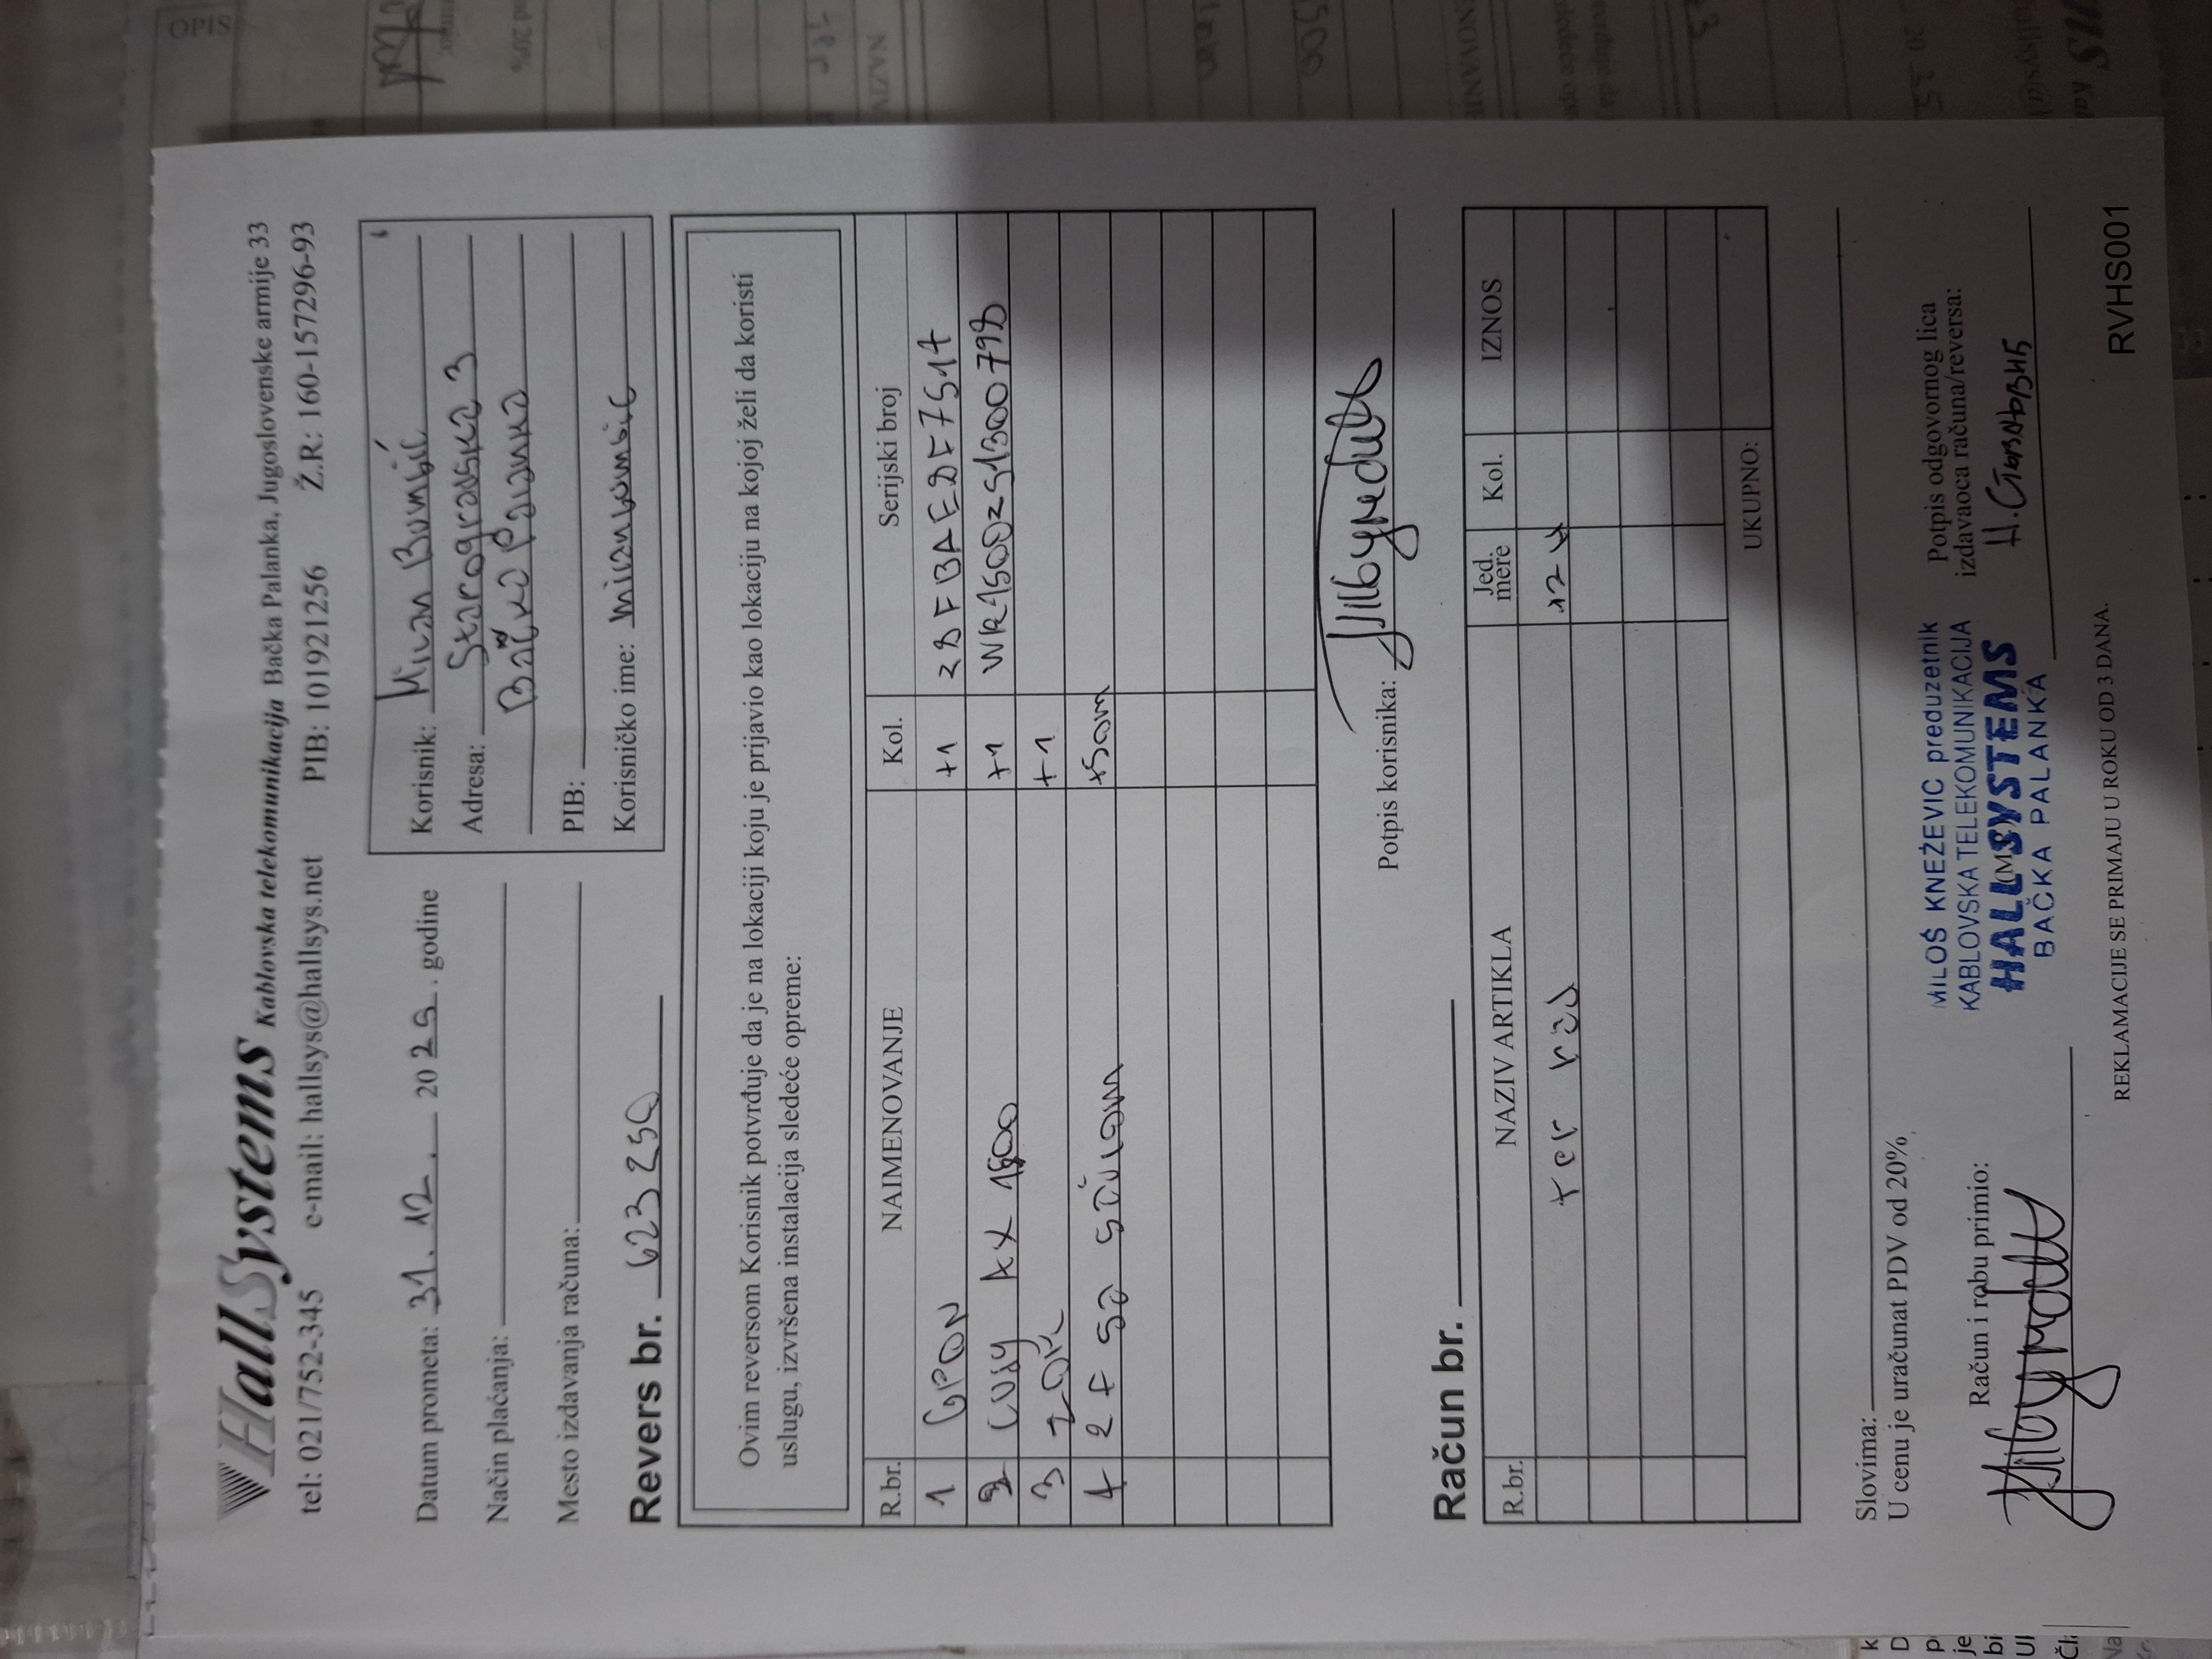 HallSystems Kablovska telekomunikacija Bačka Palanka, Jugoslovenske armije 33
tel: 021/752-345 e-mail: hallsys@hallsys.net PIB: 101921256 Ž.R: 160-157296-93
Datum prometa: 31. 12. 2025. godine
Način plaćanja:
Mesto izdavanja računa:
Korisnik: Milan Bumbić
Adresa: Starogradska 3
Bačka Palanka
PIB:
Korisničko ime: milanbumbic
Revers br. 623250
Ovim reversom Korisnik potvrđuje da je na lokaciji koju je prijavio kao lokaciju na kojoj želi da koristi
uslugu, izvršena instalacija sledeće opreme:
R.br. NAIMENOVANJE Kol. Serijski broj
1 GPON +1 28FBAEDF7517
2 Cudy AX 1500 +1 WR1500251300798
3 ZOPK +1
4 2F sa sajlom +50m
Potpis korisnika:
Račun br.
R.br. NAZIV ARTIKLA Jed. mere Kol. IZNOS
ter rad
UKUPNO:
Slovima:
U cenu je uračunat PDV od 20%
Račun i robu primio:
MILOŠ KNEŽEVIĆ preduzetnik
KABLOVSKA TELEKOMUNIKACIJA
HALL SYSTEMS
BAČKA PALANKA
(M.P.)
Potpis odgovornog lica
izdavaoca računa/reversa:
REKLAMACIJE SE PRIMAJU U ROKU OD 3 DANA.
RVHS001
OPIS